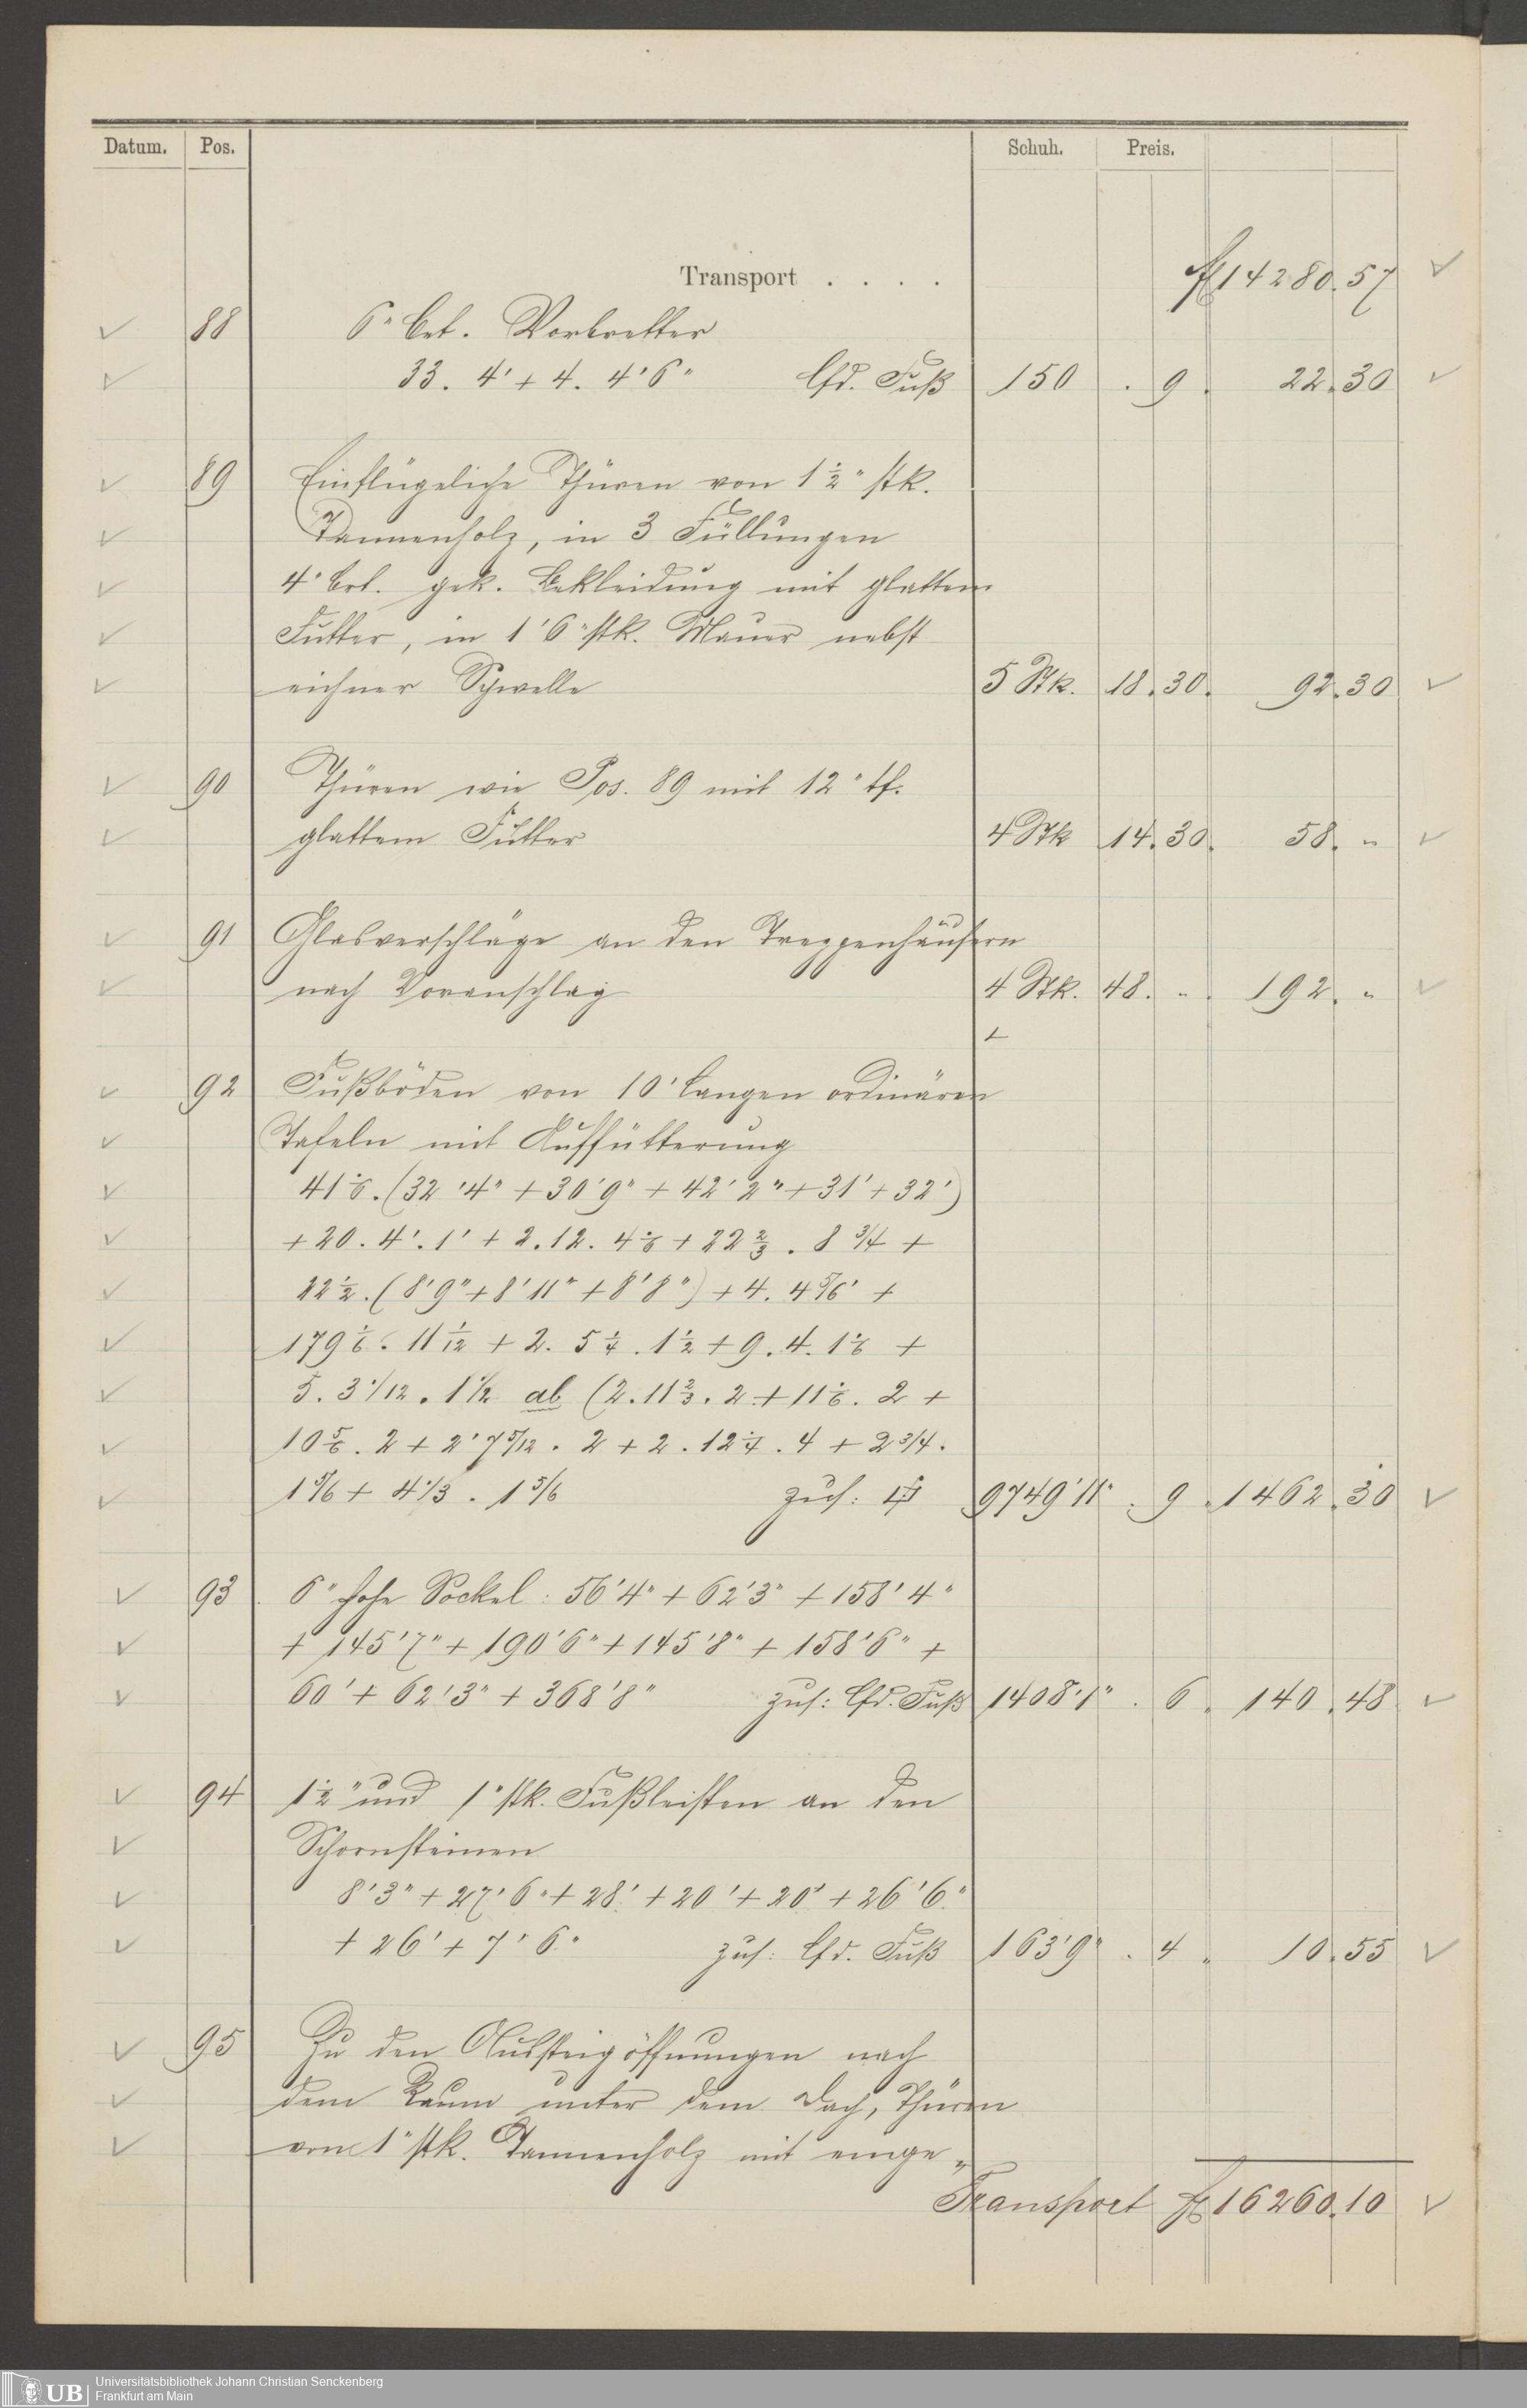 Datum. Pos. Schuh. Preis.
Transport . . . . fl 14280.57
88 6" brt. Vorbretter
33. 4' + 4. 4'6" lfd. Fuß 150 . 9 . 22.30
89 Einflügeliche Thüren von 1½" stk.
Tannenholz, in 3 Füllungen
4" brt. gek. Bekleidung mit glattem
Futter, in 1'6" stk. Mauer nebst
eichner Schwelle 5 Stk. 18.30. 92.30
90 Thüren wie Pos. 89 mit 12" tf.
glattem Futter 4 Stk 14.30. 58. "
91 Glasverschläge an den Treppenhäusern
nach Voranschlag 4 Stk. 48. " . 192. "
92 Fußböden von 10' langen ordinären
Tafeln mit Auffütterung
41⅙. (32'4" + 30'9" + 42'2" + 31' + 32')
+ 20. 4'. 1' + 2. 12. 4⅙ + 22⅔ . 8¾ +
22½. (8'9" + 8'11" + 8'8") + 4. 4⅚' +
179⅙. 11 1/12 + 2. 5¼. 1½ + 9. 4. 1⅙ +
5. 3 1/12 . 1½ ab (2. 11⅔. 2 + 11⅙. 2 +
10⅚. 2 + 2'7 5/12 . 2 + 2. 12¼. 4 + 2¾.
1⅚ + 4⅓ . 1⅚ zus: □' 9749'11" . 9 . 1462.30
93 6" hohe Sockel: 56'4" + 62'3" + 158'4"
+ 145'7" + 190'6" + 145'8" + 158'6" +
60' + 62'3" + 368'8" zus: lfd. Fuß 1408'1" . 6 . 140.48
94 1½" und 1" stk. Fußleisten an den
Schornsteinen
8'3" + 27'6" + 28' + 20' + 20' + 26'6"
+ 26' + 7'6" zus: lfd. Fuß 163'9" . 4 . 10.55
95 Zu den Aussteigöffnungen nach
dem Raum unter dem Dach, Thüren
von 1" stk. Tannenholz mit einge„
Transport fl 16260.10
UB Universitätsbibliothek Johann Christian Senckenberg
Frankfurt am Main